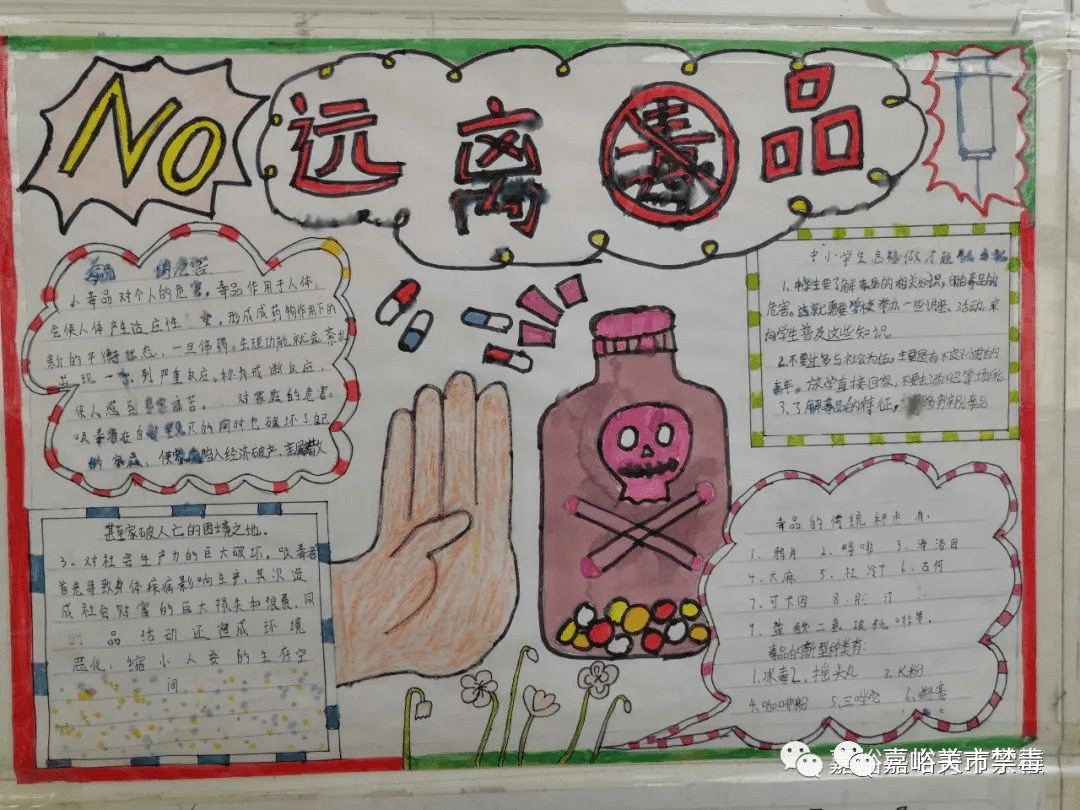 No
远离毒品
的危害
1、毒品对个人的危害。毒品作用于人体,
会使人体产生适应性 形成成药物作用下的
新的平衡状态,一旦停药,生理功能就会紊乱
出现一系列严重反应,称为戒断反应,
使人感到非常痛苦。 对家庭的危害。
吸毒者在自 灭的同时也破坏了自己
的家庭,使家庭陷入经济破产、亲属离散
甚至家破人亡的困境之地。
3、对社会生产力的巨大破坏。吸毒者
首先导致身体疾病影响生产,其次造
成社会财富的巨大损失和浪费,同
时 品活动还造成环境
恶化,缩小人类的生存空
间。
中小学生怎样做才能
1、中学生要了解毒品的相关知识,明白毒品的
危害。这就需要学校举办一些讲座、活动,来
向学生普及这些知识
2、不要过多与社会为伍,主要是有不良习惯的
青年。放学直接回家,不要去酒吧等场所
3、了解毒品的特征, 辨别毒品
毒品的传统种类有:
1、鸦片 2、吗啡 3、海洛因
4、大麻 5、杜冷丁 6、古柯
7、可卡因 8、可 汀
9、盐酸二氢埃托啡等。
毒品的新型种类有:
1、冰毒 2、摇头丸 3、K粉
4、咖啡粉 5、三唑仑 6、
嘉峪嘉峪关市禁毒